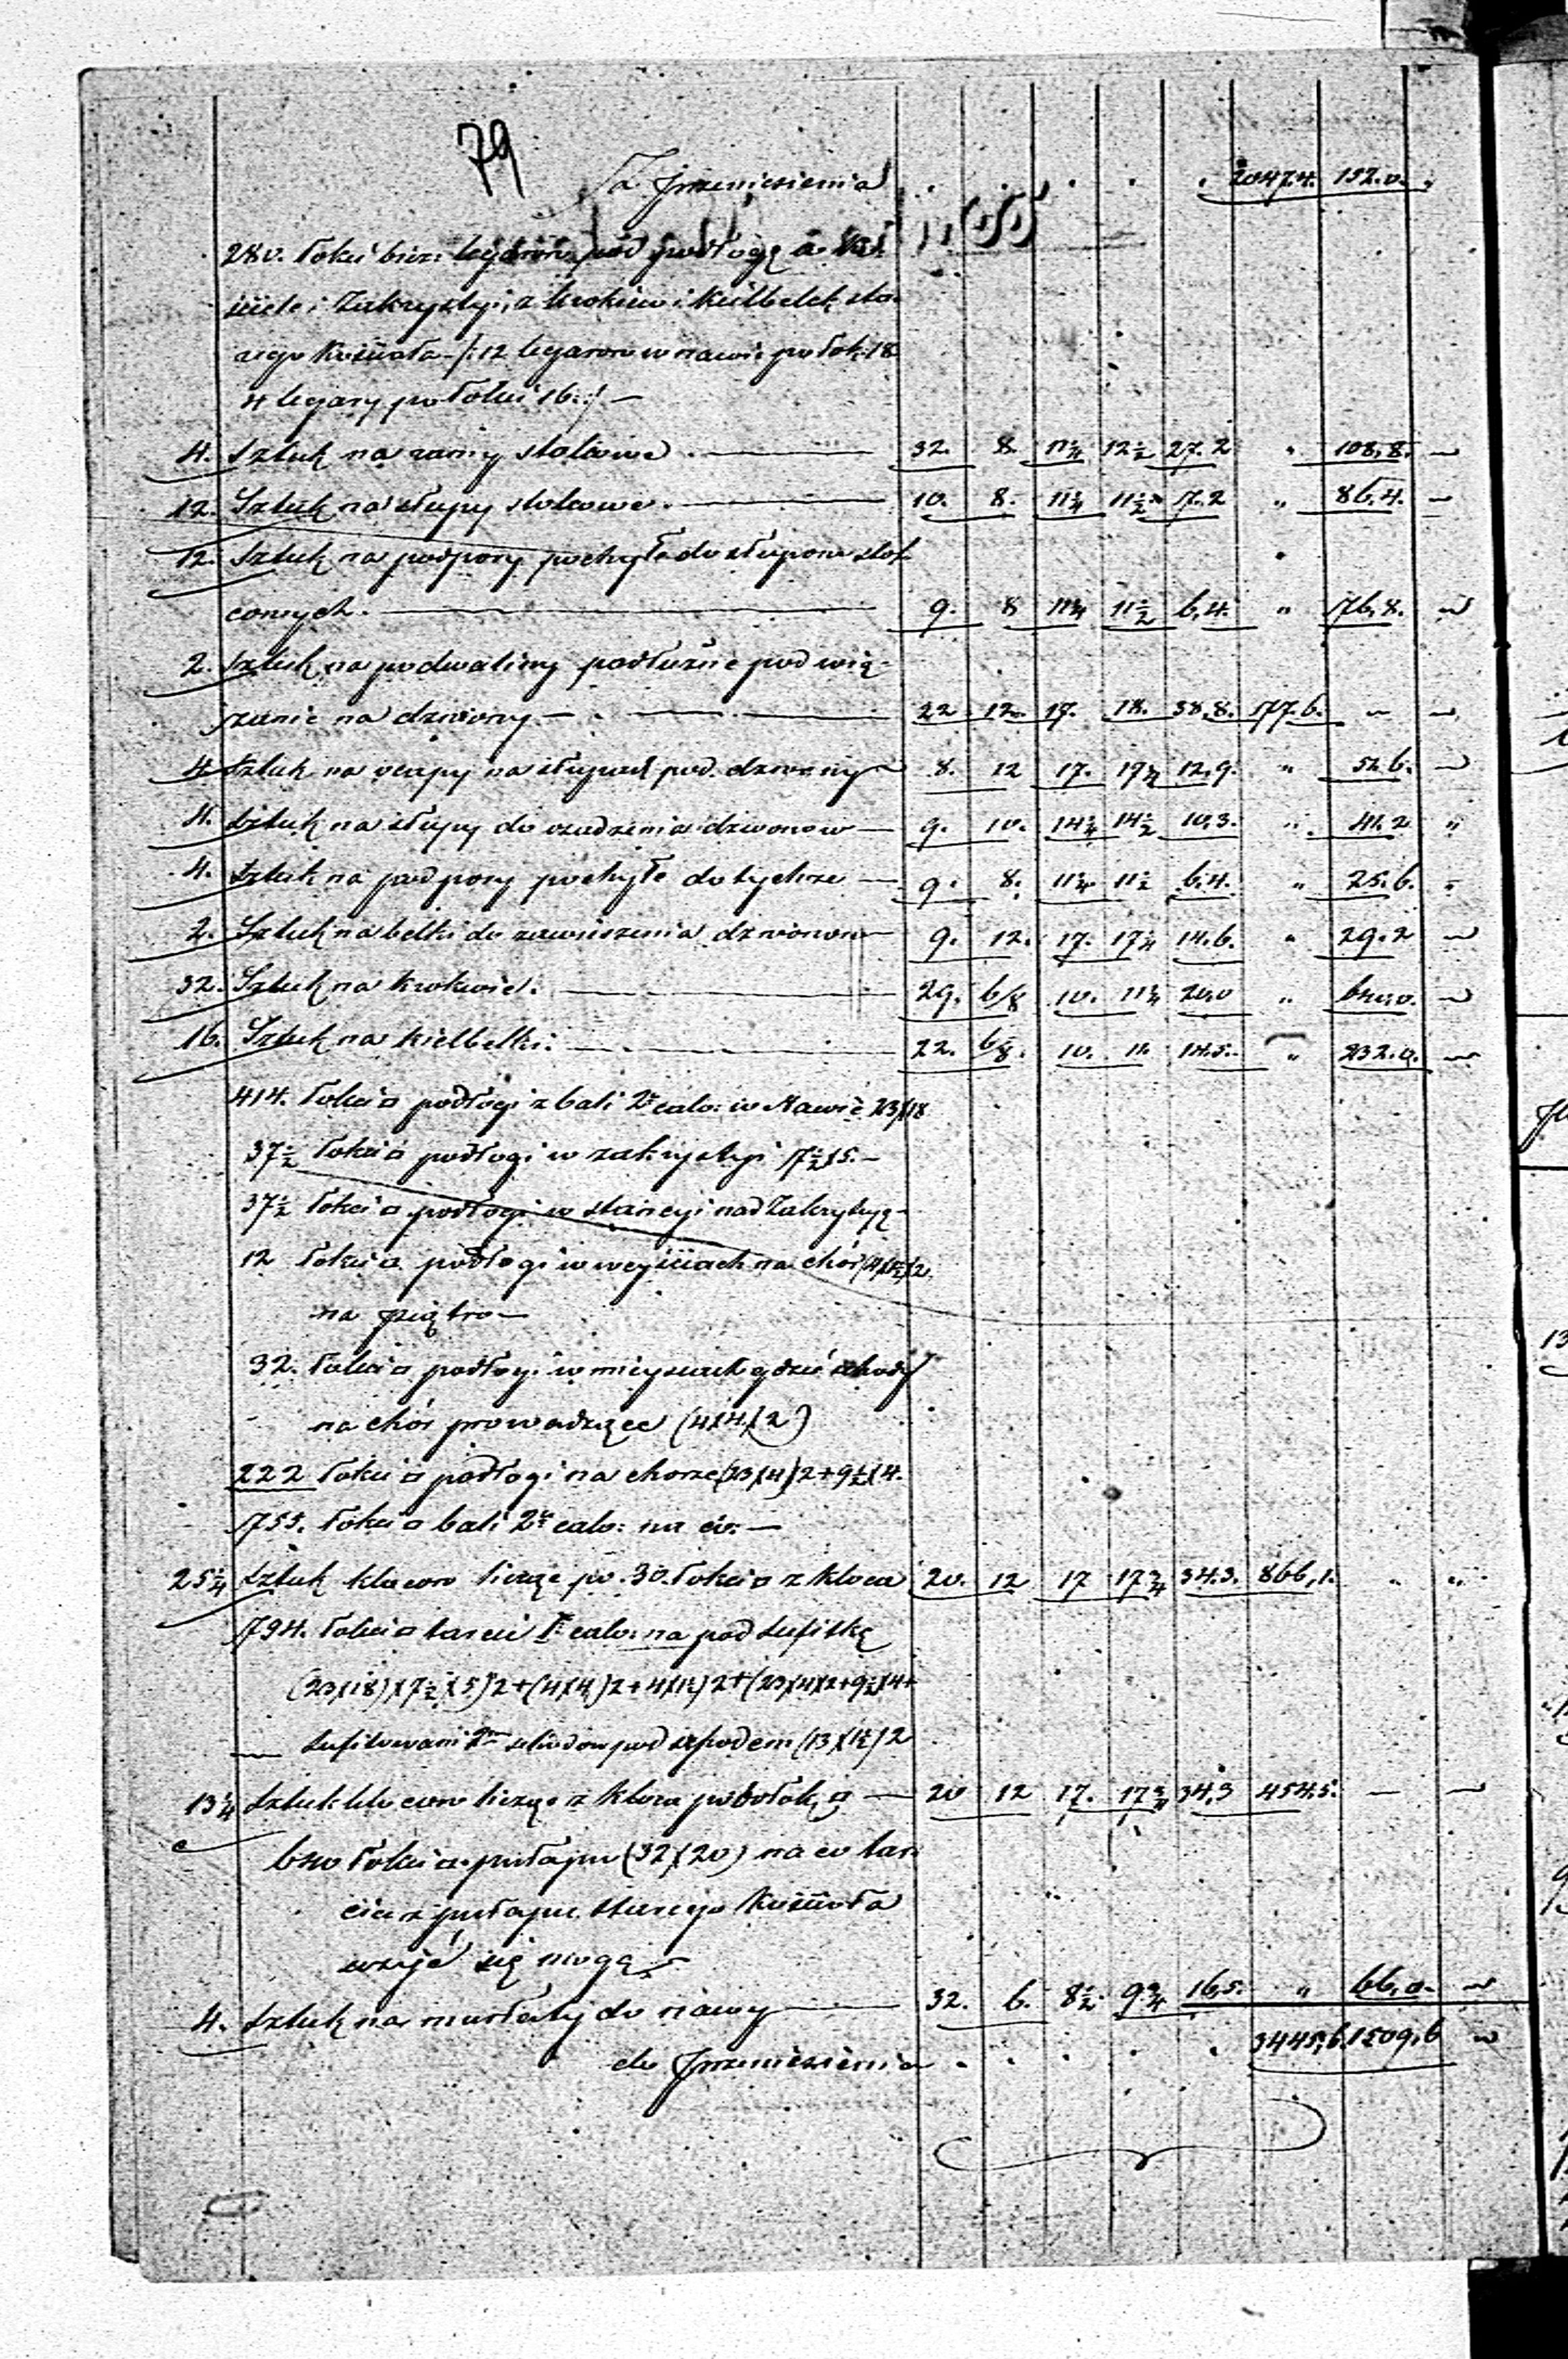 79
Z Przeniesienia . . . . . 2047.4. 152.0.
280. łokci bież: legarow pod podłogę w Koś
ciele i Zakrystyi, z krokiew i Kielbelek sta
rego Kościoła /: 12 legarow w nawie po łok: 18
4 legary po łokci 16 :/ —
4. Sztuk na ramy stolcowe. — 32. 8. 11¼ 12½ 27.2 " 108,8. —
12. Sztuk na słupy stolcowe. — 10. 8. 11¼ 11½ 7.2 " 86,4. —
12. Sztuk na podpory pochyłe do słupow stol
cowych. — 9. 8 11¼ 11½ 6,4. " 76,8. —
2. Sztuk na podwaliny podłużne pod wią-
zanie na dzwony — 22 12. 17. 18. 38,8. 77.6. — —
4. Sztuk na oczepy na słupach pod dzwony — 8. 12 17. 17¾ 12,9. " 52.6. —
4. Sztuk na słupy do osadzenia dzwonow — 9. 10. 14¼ 14½ 10,3. " 41.2 "
4. Sztuk na podpory pochyłe do tychże — 9. 8. 11¼ 11½ 6.4. " 25.6. "
2. Sztuk na belki do zawieszenia dzwonow — 9. 12. 17. 17¼ 14.6. " 29.2 —
32. Sztuk na krokwie. — 29. 6/8 10. 11¼ 20,0 " 640,0. —
16. Sztuk na kielbelki. — 22. 6/8. 10. 11. 14.5. " 232.0. —
414. łokci □ podłogi z bali 2 calo: w Nawie 23)(18
37½ łokci □ podłogi w zakrystyi 7½)(5. —
37½ łokci □ podłogi w stancyi nad Zakrystyą —
12 łokci □ podłogi w weyściach na chór (4)(1½)2
na piętro —
32. łokci □ podłogi w mieyscach gdzie schody
na chór prowadzące (4)(4)(2)
222 łokci □ podłogi na chorze (23)(4)2+9½)(4.
755. łokci □ bali 2 calo: na co: —
25¼ Sztuk klocow licząc po 30. łokci □ z kloca 20. 12 17 17¾ 34.3. 866,1. " "
794. łokci □ tarcic 1 calo: na podsufitkę
(23)(18))(7½)(5)2+(4)(4)2+4)(1½)2+(23)(4)(2+9½)(4+
— sufitowani 2 schodow pod spodem (13)(1½)2
13¼ Sztuk klocow licząc z kloca po 60 łok □ — 20 12 17. 17¾ 34,3 454.5. — —
640 łokci □ pułapu (32)(20) na co tar
cice z pułapu starego Kościoła
użyć się mogą —
4. Sztuk na murłaty do nawy — 32. 6. 8½ 9¾ 16,5. " 66,0. —
do Przeniesienia . . . . . 3445,6. 1509,6 —